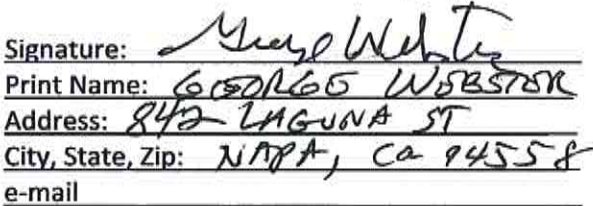 Signature: George Webster
Print Name: GEORGE WEBSTER
Address: 842 LAGUNA ST
City, State, Zip: NAPA, Ca 94558
e-mail